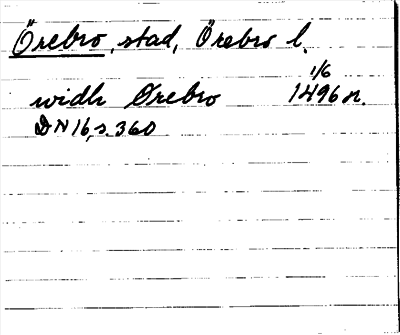 Örebro, stad, Örebro l.
1/6
widh Ørebro 1496 n.
DN 16, s. 360